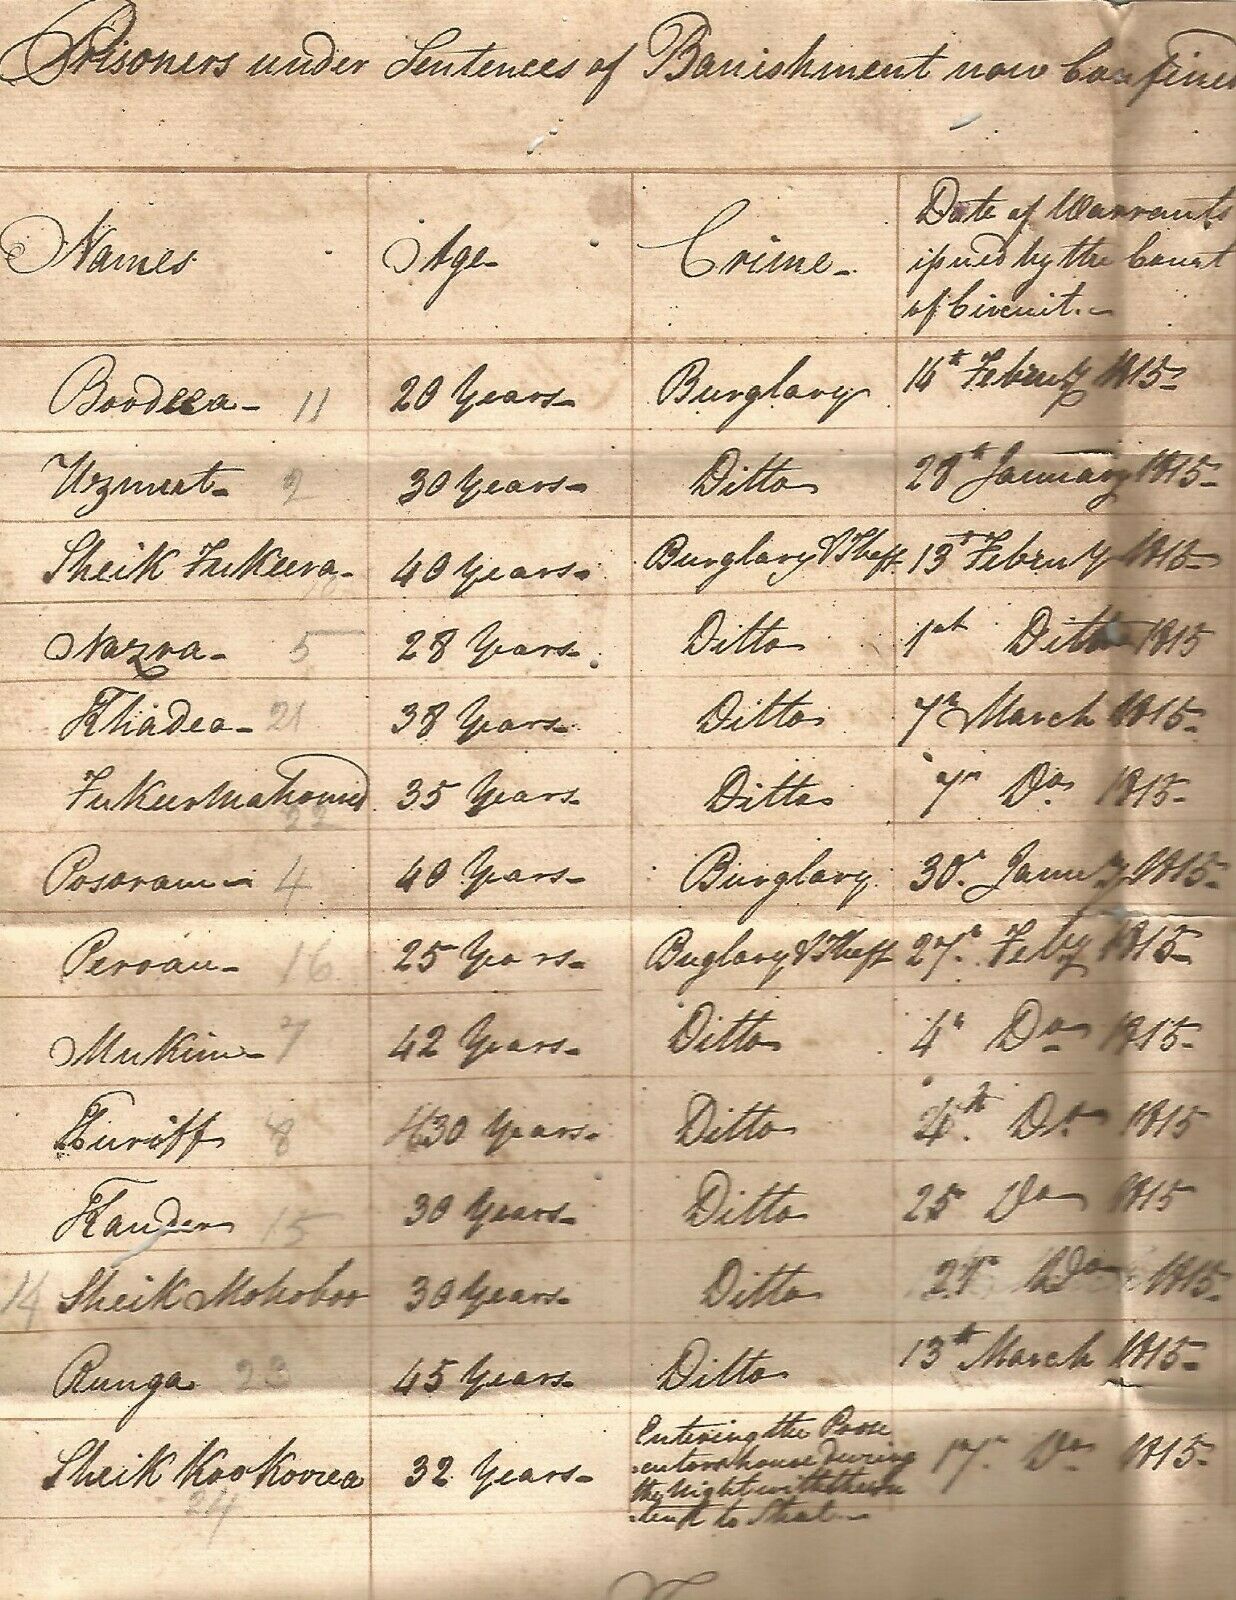 Prisoners under Sentences of Banishment now Confined
Names Age Crime Date of Warrants
issued by the Court
of Circuit.
Boodeea 11 20 Years Burglary 14th Februy 1815
Uzmut 2 30 Years Ditto 28th January 1815
Sheik Fukeera 40 Years Burglary & Theft 13th Februy 1815
Nazra 5 28 Years Ditto 1st Ditto 1815
Khadea 21 38 Years Ditto 7th March 1815
Fukeer Mahomed 22 35 Years Ditto 7th Do 1815
Posoram 4 40 Years Burglary 30th Januy 1815
Perrau 16 25 Years Buglary & Theft 27th Feby 1815
Mukim 7 42 Years Ditto 4th Do 1815
Kuriff 8 30 Years Ditto 4th Do 1815
Kauder 15 30 Years Ditto 25 Do 1815
14 Sheik Mohoboo 30 Years Ditto Do 1815
Runga 23 45 Years Ditto 13th March 1815
Sheik Kookooreea 24 32 Years Entering the Prose
cutors house During
the Night with the in
tent to Steal 17th Do 1815